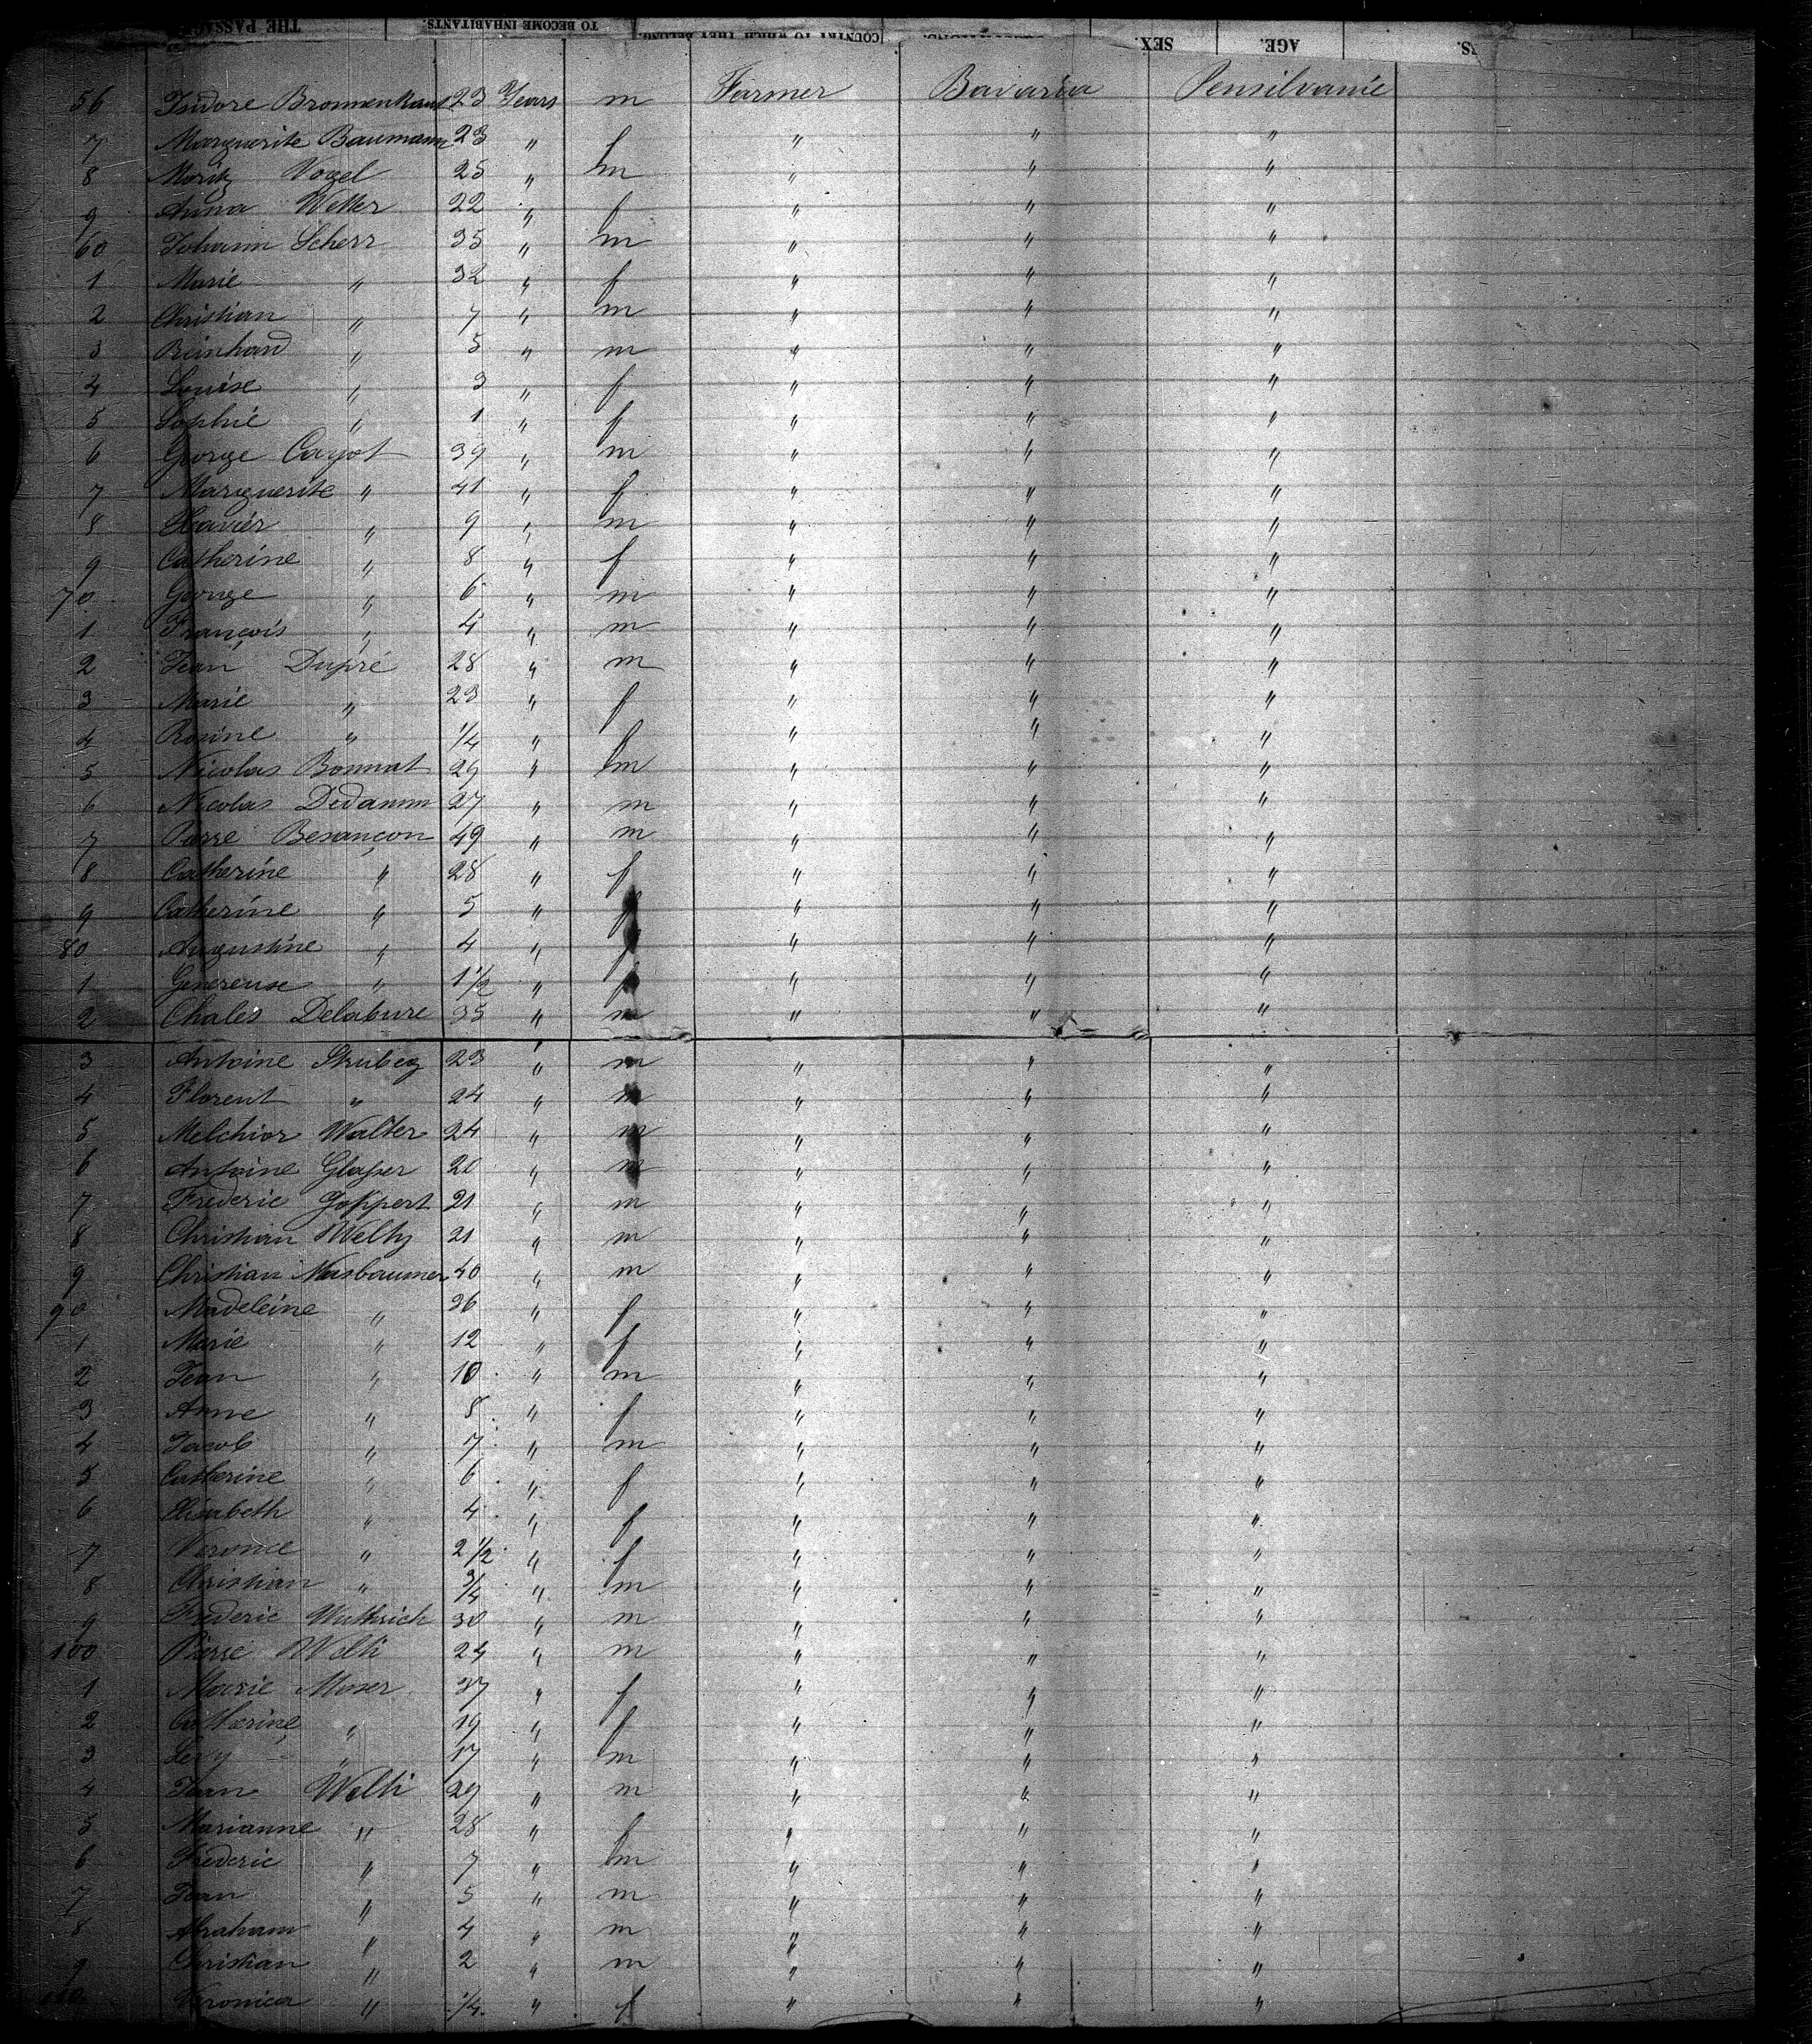 THE PASSAG TO BECOME INHABITANTS. COUNTRY TO WHICH THEY BELONG. SEX. AGE.
56 Isidore 23 Years m Farmer Bavaria Pensilvanie
7 Marguerite Baumann 23 " f " " "
8 Moritz Vogel 25 " m " " "
9 Anna Wetter 22 " f " " "
60 Johann Scherr 35 " m " " "
1 Marie " 32 " f " " "
2 Christian " 7 " m " " "
3 Reinhard " 5 " m " " "
4 Louise " 3 " f " " "
5 Sophie " 1 " f " " "
6 George Cayot 39 " m " " "
7 Marguerite " 41 " f " " "
8 Xavier " 9 " m " " "
9 Catherine " 8 " f " " "
70 George " 6 " m " " "
1 François " 4 " m " " "
2 Jean Dupré 28 " m " " "
3 Marie " 23 " f " " "
4 Rosine " 1/4 " f " " "
5 Nicolas Bonnat 29 " m " " "
6 Nicolas Dedamm 27 " m " " "
7 Pierre Besançon 49 " m " " "
8 Catherine " 28 " f " " "
9 Catherine " 5 " f " " "
80 Augustine " 4 " f " " "
1 Genereuse " 1 1/2 " f " " "
2 Chales Delabure 35 " m " " "
3 Antoine 23 " m " " "
4 Florent " 24 " m " " "
5 Melchior Walter 24 " m " " "
6 Antoine Glasser 20 " m " " "
7 Frederic Goppert 21 " m " " "
8 Christian Welty 21 " m " " "
9 Christian Nusbaumer 40 " m " " "
90 Madeleine " 36 " f " " "
1 Marie " 12 " f " " "
2 Jean " 10 " m " " "
3 Anne " 8 " f " " "
4 Jacob " 7 " m " " "
5 Catherine " 6 " f " " "
6 Elisabeth " 4 " f " " "
7 Veronice " 2 1/2 " f " " "
8 Christian " 3/4 " m " " "
9 Frederic Wuthrich 30 " m " " "
100 Pierre Welti 24 " m " " "
1 Marie Moser 37 " f " " "
2 Catherine " 19 " f " " "
3 Levy " 17 " m " " "
4 Jean Welti 29 " m " " "
5 Marianne " 28 " f " " "
6 Frederic " 7 " m " " "
7 Jean " 5 " m " " "
8 Abraham " 4 " m " " "
9 Christian " 2 " m " " "
110 Veronica " 1/4 " f " " "